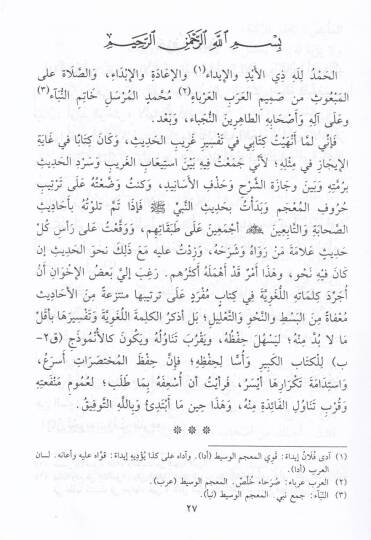 بِسْمِ اللَّهِ الرَّحْمَنِ الرَّحِيمِ
الحَمْدُ لِلَّهِ ذِي الأَيْدِ والإيداءِ(١) والإعَادَةِ والإبْدَاءِ، وَالصَّلَاة على
المَبْعُوثِ من صَمِيمِ العَرَبِ العَرْباءِ(٢) مُحَمَّدٍ المُرْسَلِ خَاتِمِ النُّبَآءِ(٣)
وعلَى آلِهِ وَأَصْحَابِهِ الطاهِرِينَ النُّجَباء، وَبَعْد.
فَإِنِّي لمَّا أَنْهَيْتُ كِتَابِي في تَفْسِيرِ غَرِيبِ الحَدِيثِ، وَكَانَ كِتَابًا في غَايَةِ
الإيجَازِ في مِثْلِهِ؛ لأَنِّي جَمَعْتُ فِيهِ بَيْنَ استِيعَابِ الغَريبِ وَسَرْدِ الحَدِيثِ
برمَّتِهِ وَبَينَ وجَازَةِ الشَّرْحِ وَحَذْفِ الأَسَانِيدِ، وَكنتُ وَضَعْتُهُ عَلَى تَرْتِيْبِ
حُرُوفِ المُعْجَمِ وَبَدَأْتُ بحَدِيثِ النَّبِيِّ ﷺ فَإِذَا تَمَّ تلوْتُهُ بأَحَادِيثِ
الصَّحَابَةِ وَالتَّابِعِينَ أجْمَعِينَ عَلَى طَبَقَاتِهِم، وَوَقَّعْتُ عَلَى رَأسِ كُلِّ
حَدِيثٍ عَلَامَةَ مَنْ رَوَاهُ وَشَرَحَهُ، وَزِدْتُ عليه مَعَ ذَلِكَ نحوَ الحَدِيثِ إن
كَانَ فيْهِ نَحْو، وهَذا أَمْرٌ قَدْ أَهْمَلَهُ أَكثَرُهم. رَغِبَ إِليَّ بَعْضُ الإخْوَانِ أنْ
أُجَرِّدَ كَلِمَاتِهِ اللُّغَوِيَّةَ في كِتَابٍ مُفْرَدٍ عَلَى ترتيبها منتزعةً مِنَ الأحَاديث
مُعْفَاةً مِنَ البَسْطِ والنَّحْوِ والتَّعْلِيلِ؛ بَل أذكرُ الكلِمةَ اللُّغَوِيَّةَ وَتَفْسِيرَهَا بأقَلِّ
مَا لا بُدَّ مِنْهُ؛ لِيَسْهُلَ حِفْظُهُ، وَيَقْرُبَ تَنَاوُلُهُ وَيكُونَ كالأُنْمُوذَجِ (ق٢-
ب) لِلْكتَابِ الكَبِيرِ وَأُسًّا لِحِفْظِهِ؛ فإنَّ حِفْظَ المُختَصَرَاتِ أَسْرَعُ،
وَاسْتِدَامَةَ تَكْرَارِهَا أَيْسَرُ، فَرَأيْتُ أن أُسْعِفَهُ بِمَا طَلَب؛ لعُمُومِ مَنْفَعَتِهِ
وَقُرْبِ تَنَاوُلِ الفَائِدَةِ مِنْهُ، وَهَذَا حِين مَا أَبْتَدِئُ وَبِاللَّهِ التَّوفِيقُ.
* * *
(١) آدى فُلَانٌ إيدَاءً: قَوِيَ المعجم الوسيط (أدا). وآداه على كذا يُؤْدِيهِ إيدَاءً: قوَّاه عليه وأعانه. لسان
العرب (أدا).
(٢) العرب عرباء: صُرَحاء خُلَّصٌ. المعجم الوسيط (عرب).
(٣) النُّبَآء: جمع نبي. المعجم الوسيط (نبأ).
٢٧